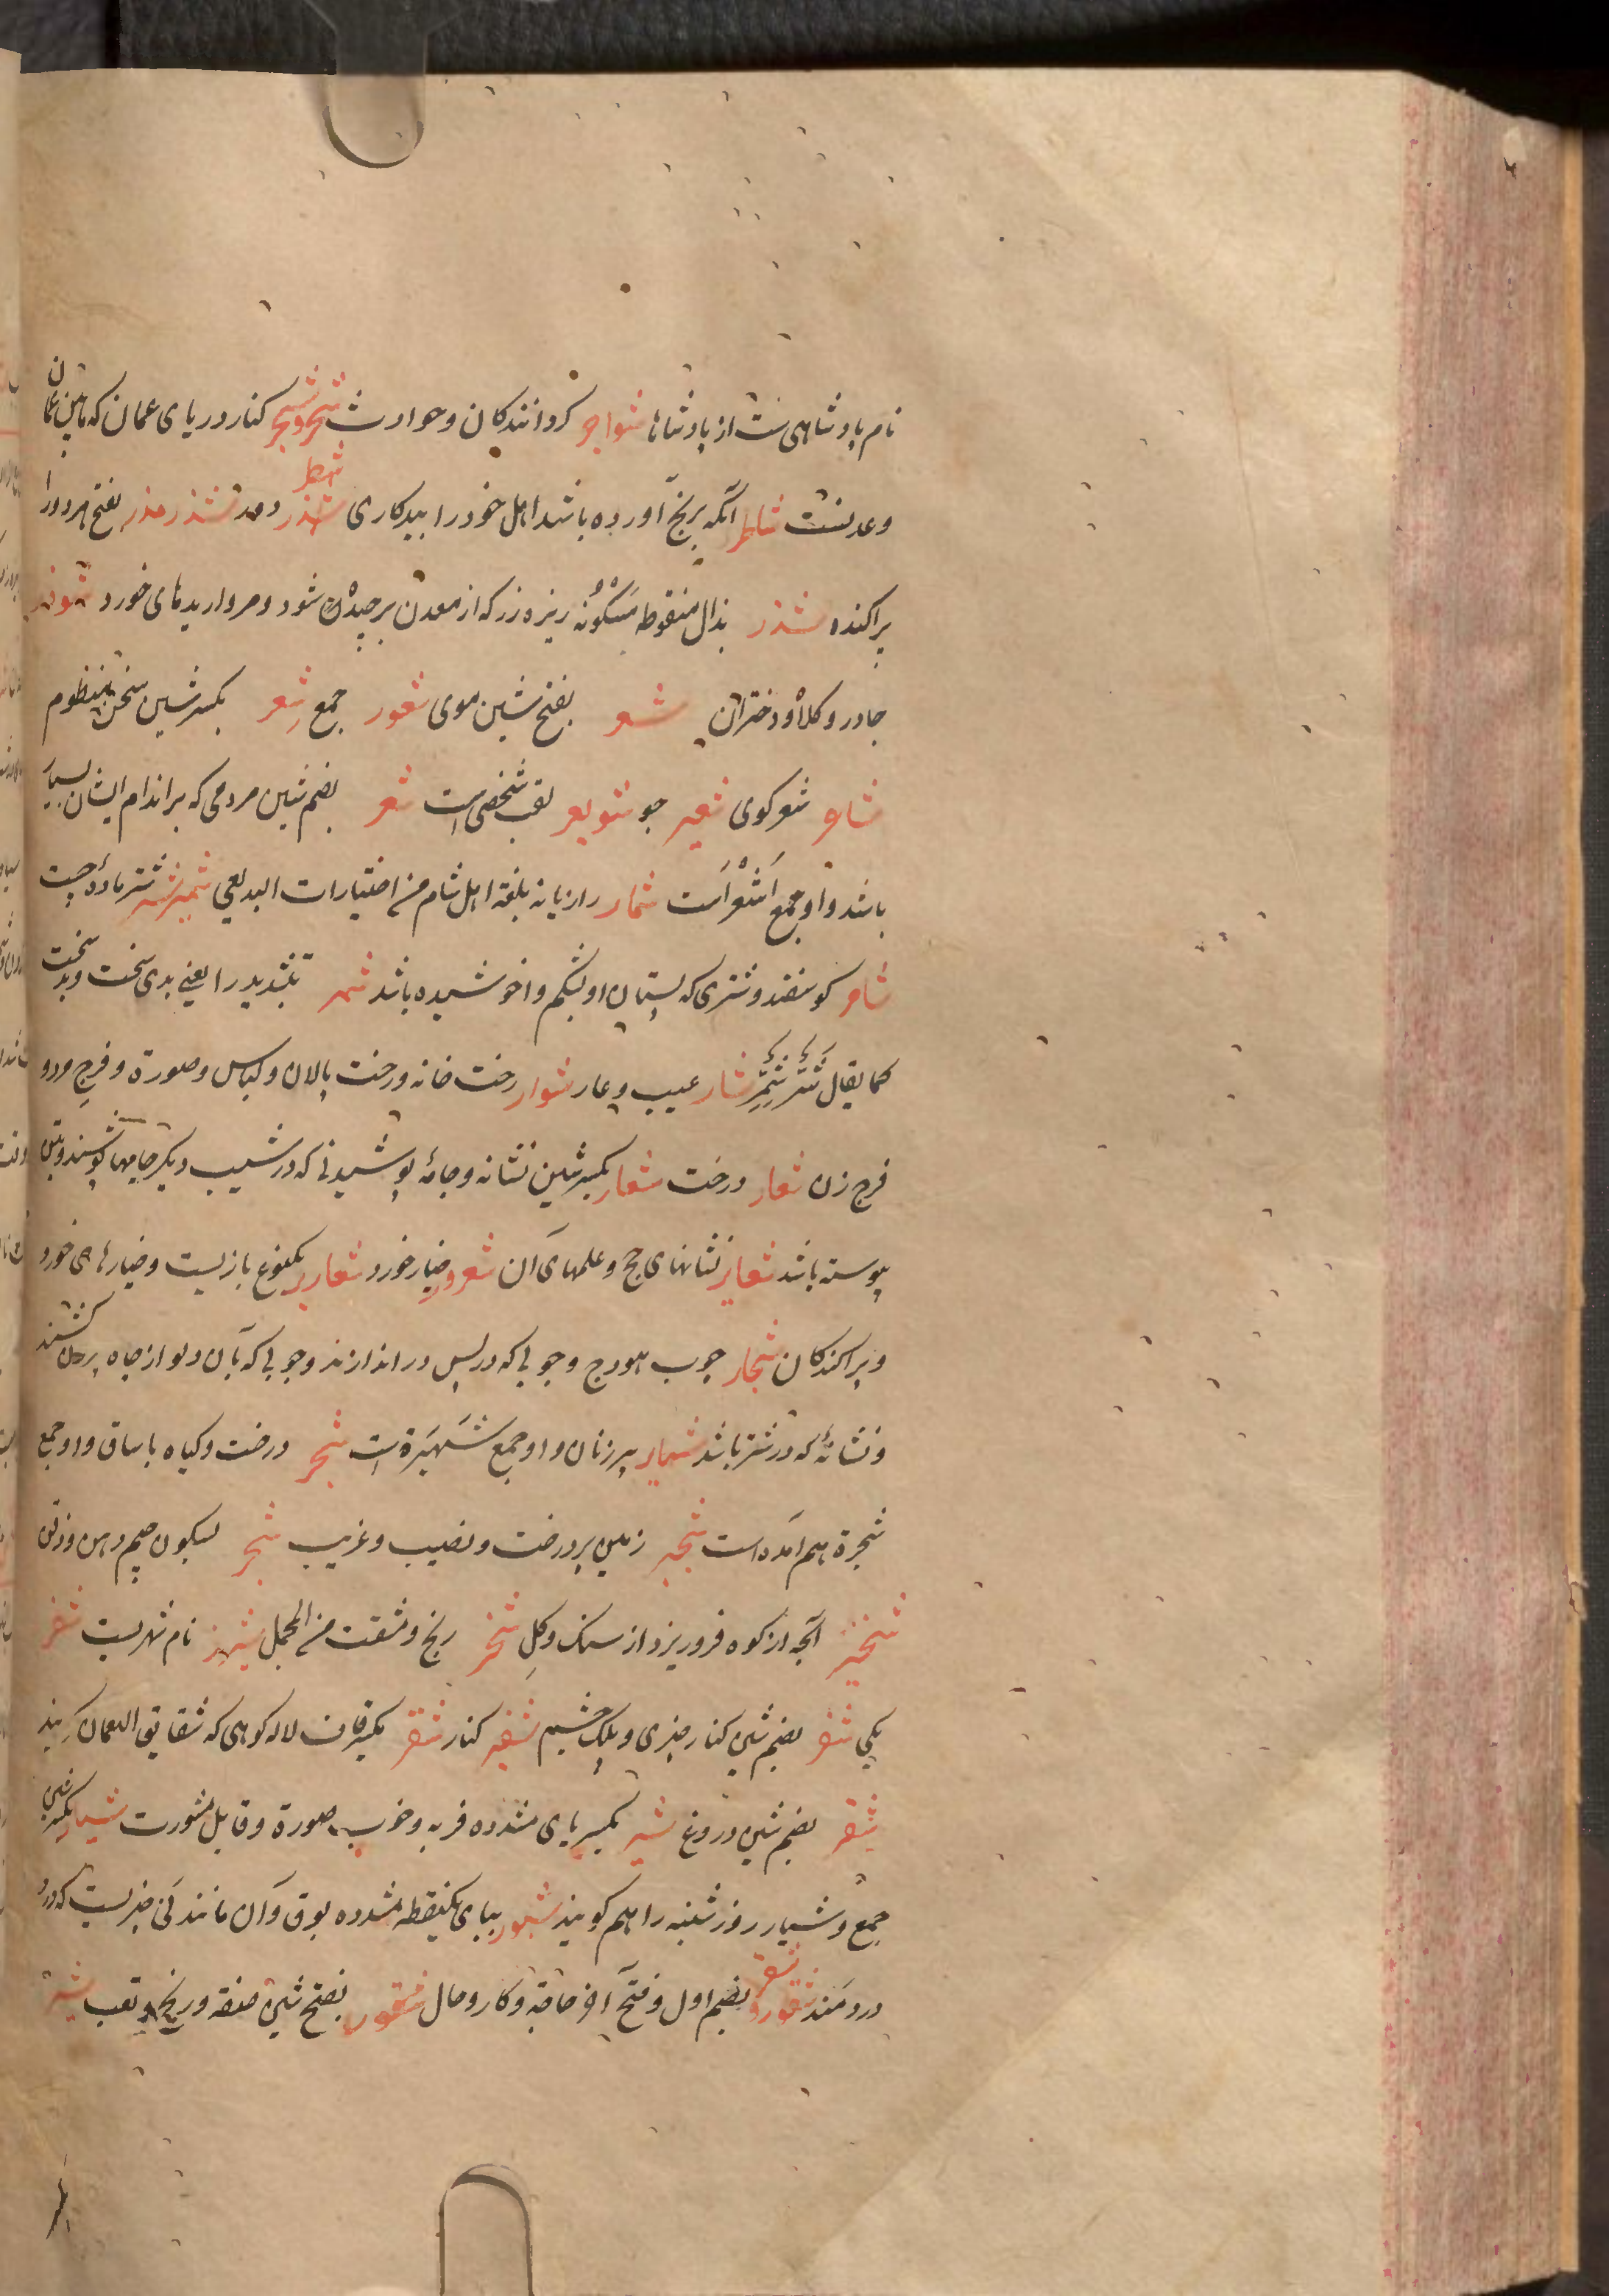 نام پادشاهی ست از پادشاها شواجر کردانندکان وحوادث شحر وشحر کنار دریای عمان که مابین عمان
وعدنست شاطر آنکه برنج آورده باشد اهل خود را ببدکاری شطر شذر ومذر شذر مذر بفتح هر دو را
پراکنده شذر بذال منقوطه مسکونه ریزه زر که از معدن برچیده شود ومرواریدهای خورد شوذر
چادر وکلاه دختران شعر بفتح شین موی شعور جمع شعر بکسر شین سخن منظوم
شاعر شعر کوی شعیر جو شویعر لقب شخصی است شعر بضم شین مردمی که بر اندام ایشان بسیار
باشد واو جمع اَشْعَر است شمار رازیانه بلغة اهل شام من اختیارات البدیعی شمیر شتر ماده چست
شاصر کوسفند وشتری که پستان او بشکم واخوشیده باشد شمر بتشدید را یعنی بدی سخت وبد سخت
کما یقال شَرٌّ شِمِرٌّ شنار عیب وعار شوار رخت خانه ورخت پالان ولباس وصورة وفرج مرد و
فرج زن شعار درخت شعار بکسر شین نشانه وجامۀ پوشیدنی که در شیب دیکر جامها پوشند وبتن
پیوسته باشد شعایر نشانهای حج وعلمهای آن شعرور خیار خورد شعاریر یکنوع بازیست وخیارهای خورد
وپراکندکان شجار چوب هودج وچوبی که در پس در اندازند وچوبی که بآن دلو از چاه برکشند
ونشانۀ که در شتر باشد شهابر پیر زنان واو جمع شَهبَرَة است شجر درخت وکیاه با ساق واو جمع
شجرة هم آمده است شجیر زمین پر درخت ونصیب وغریب شجر بسکون جیم دهن وذقن
شخیر آنچه از کوه فرو ریزد از سنک وکل شخر رنج ومشقت من المجمل نام شهریست شفر
یکی شفر بضم شین کنار چیزی وپلک چشم شفیر کنار شقر بکسر قاف لاله کوهی که شقایق النعمان کویند
شقر بضم شین دروغ شیر بکسر یای مشدده فربه وخوب صورة وقابل مشورت شیار بکسر شین
جمع وشیار روز شنبه را هم کویند شبور ببای یکنقطه مشدده بوق وآن مانند نی چیزیست که درو
در دمند شقور بضم اول وفتح آخر حاجة وکار وحال شقور بفتح شین صفة ورنج وتعب